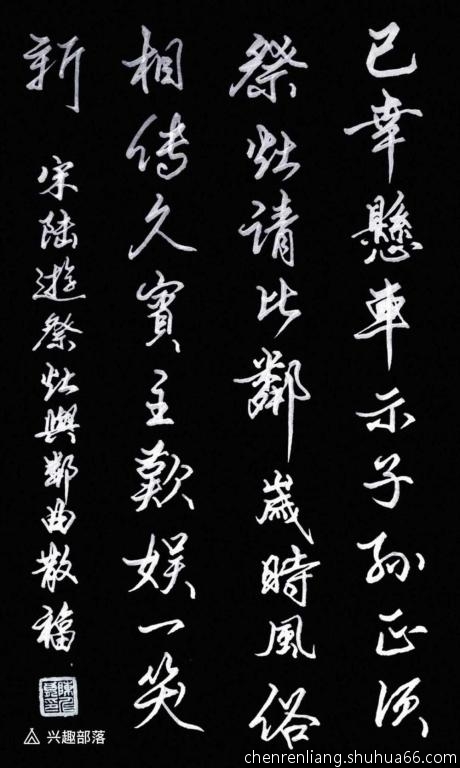 已幸懸車示子孫正須
祭灶請比鄰歲時風俗
相傳久賓主歡娱一笑
新
宋陸遊祭灶與鄰曲散福
兴趣部落
chenrenliang.shuhua66.com